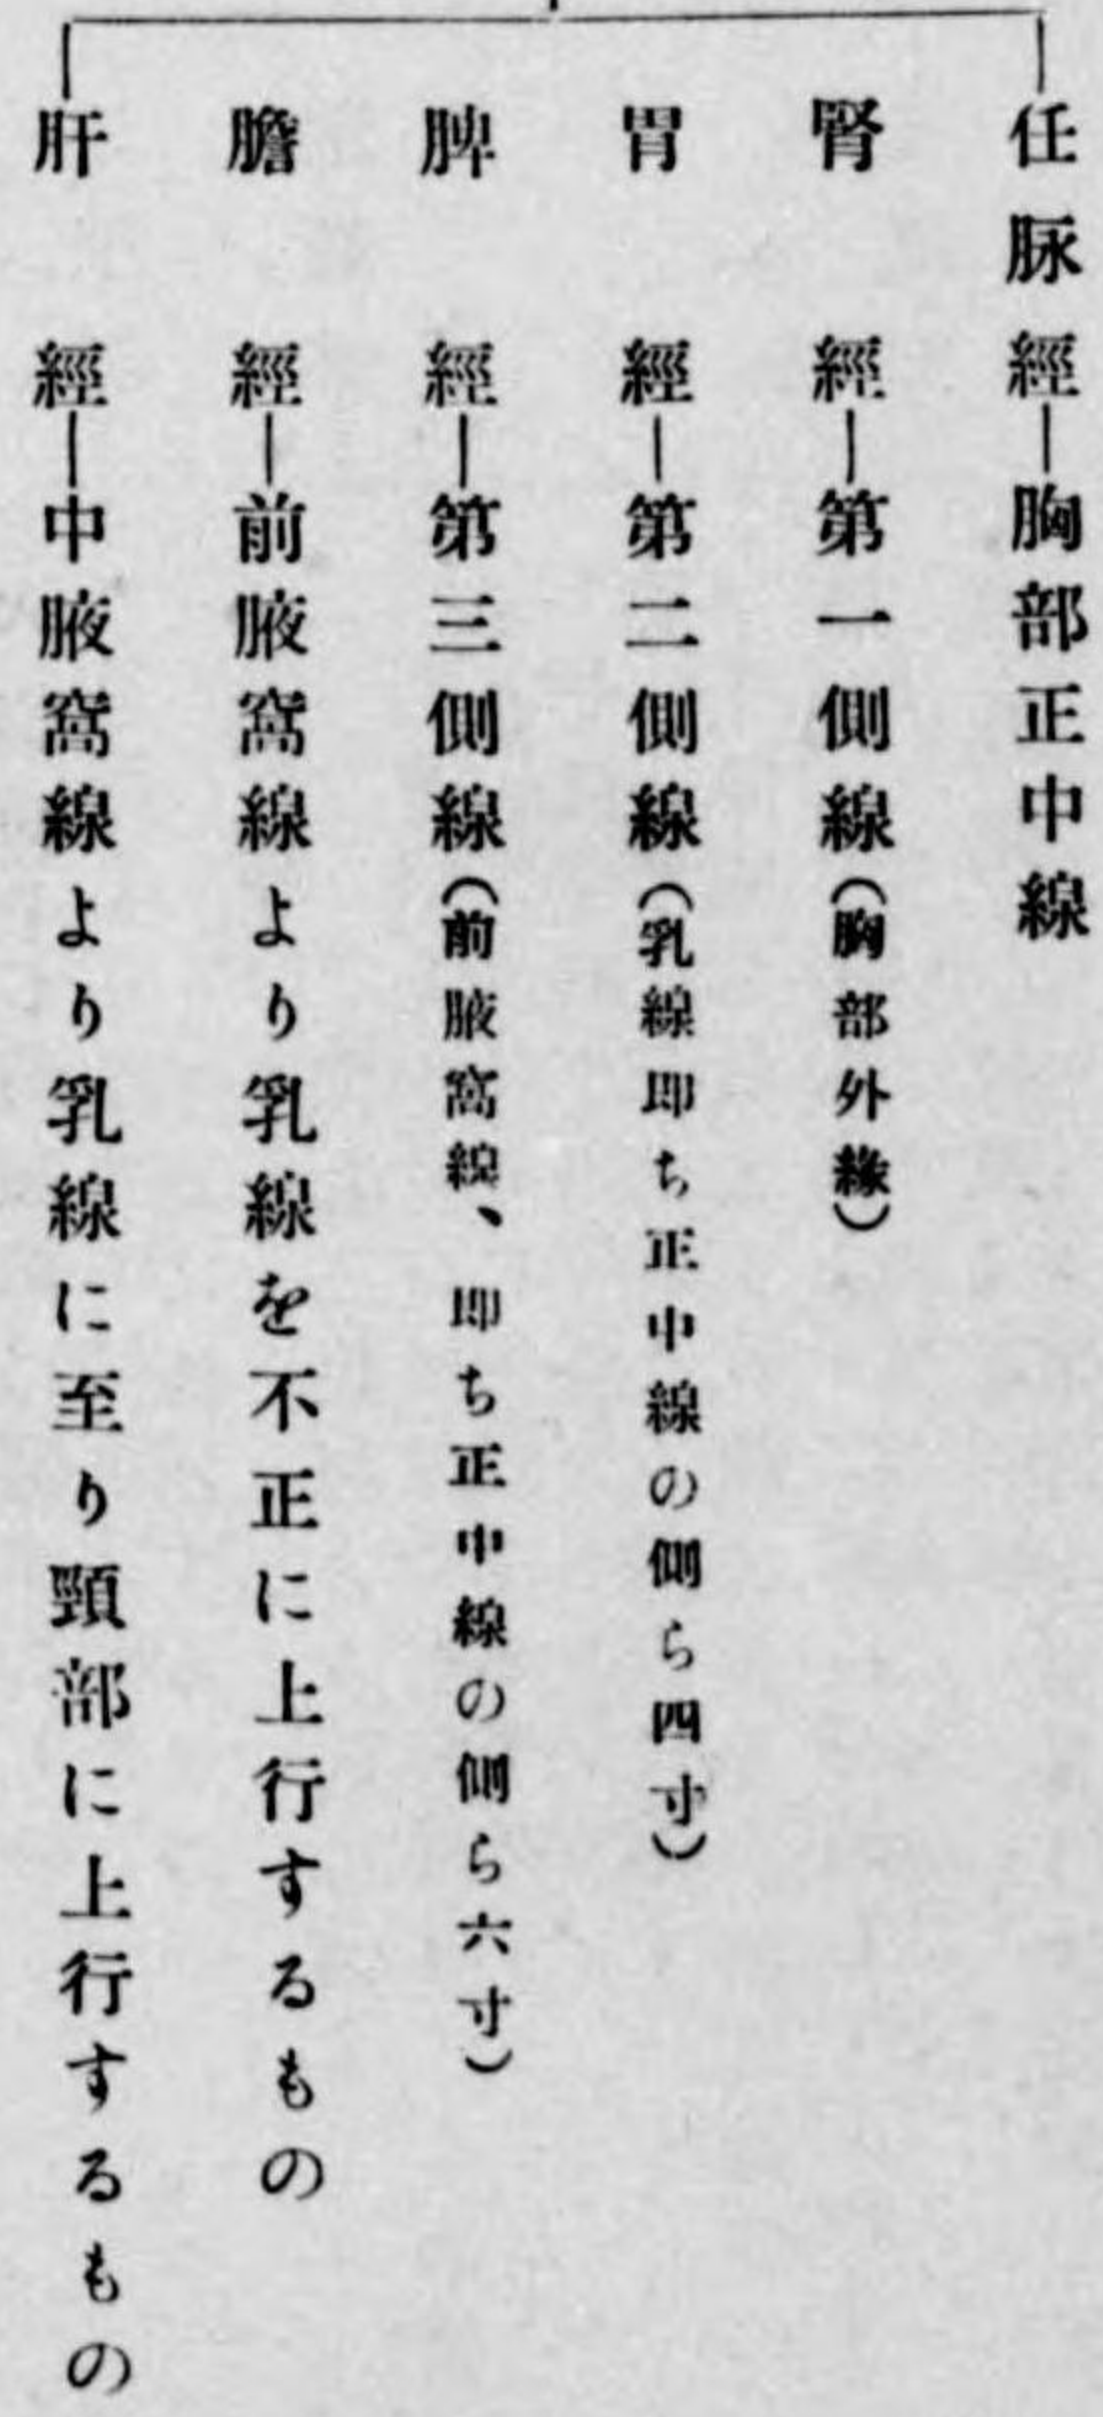 任脉經―胸部正中線
腎經―第一側線(胸部外緣)
胃經―第二側線(乳線即ち正中線の側ら四寸)
脾經―第三側線(前腋窩線、即ち正中線の側ら六寸)
膽經―前腋窩線より乳線を不正に上行するもの
肝經―中腋窩線より乳線に至り頸部に上行するもの